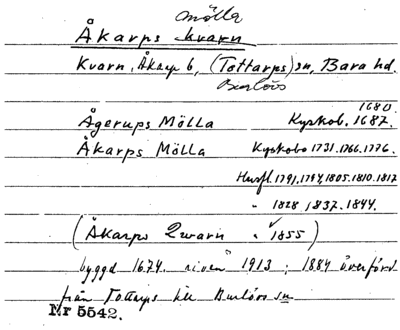 mölla
Åkarps kvarn
Kvarn, Åkarp 6, (Tottarps) sn, Bara hd.
Burlövs
1680
Ågerups Mölla Kyrkob. 1687.
Åkarps Mölla Kyrkobo 1731.1766.1776.
Husfl. 1791,1794,1805.1810.1817
" 1828 1837. 1844.
(Åkarps Qwarn " 1855)
byggd 1674. riven 1913; 1884 överförd
från Tottarps till Burlövs sn
Nr 5542.